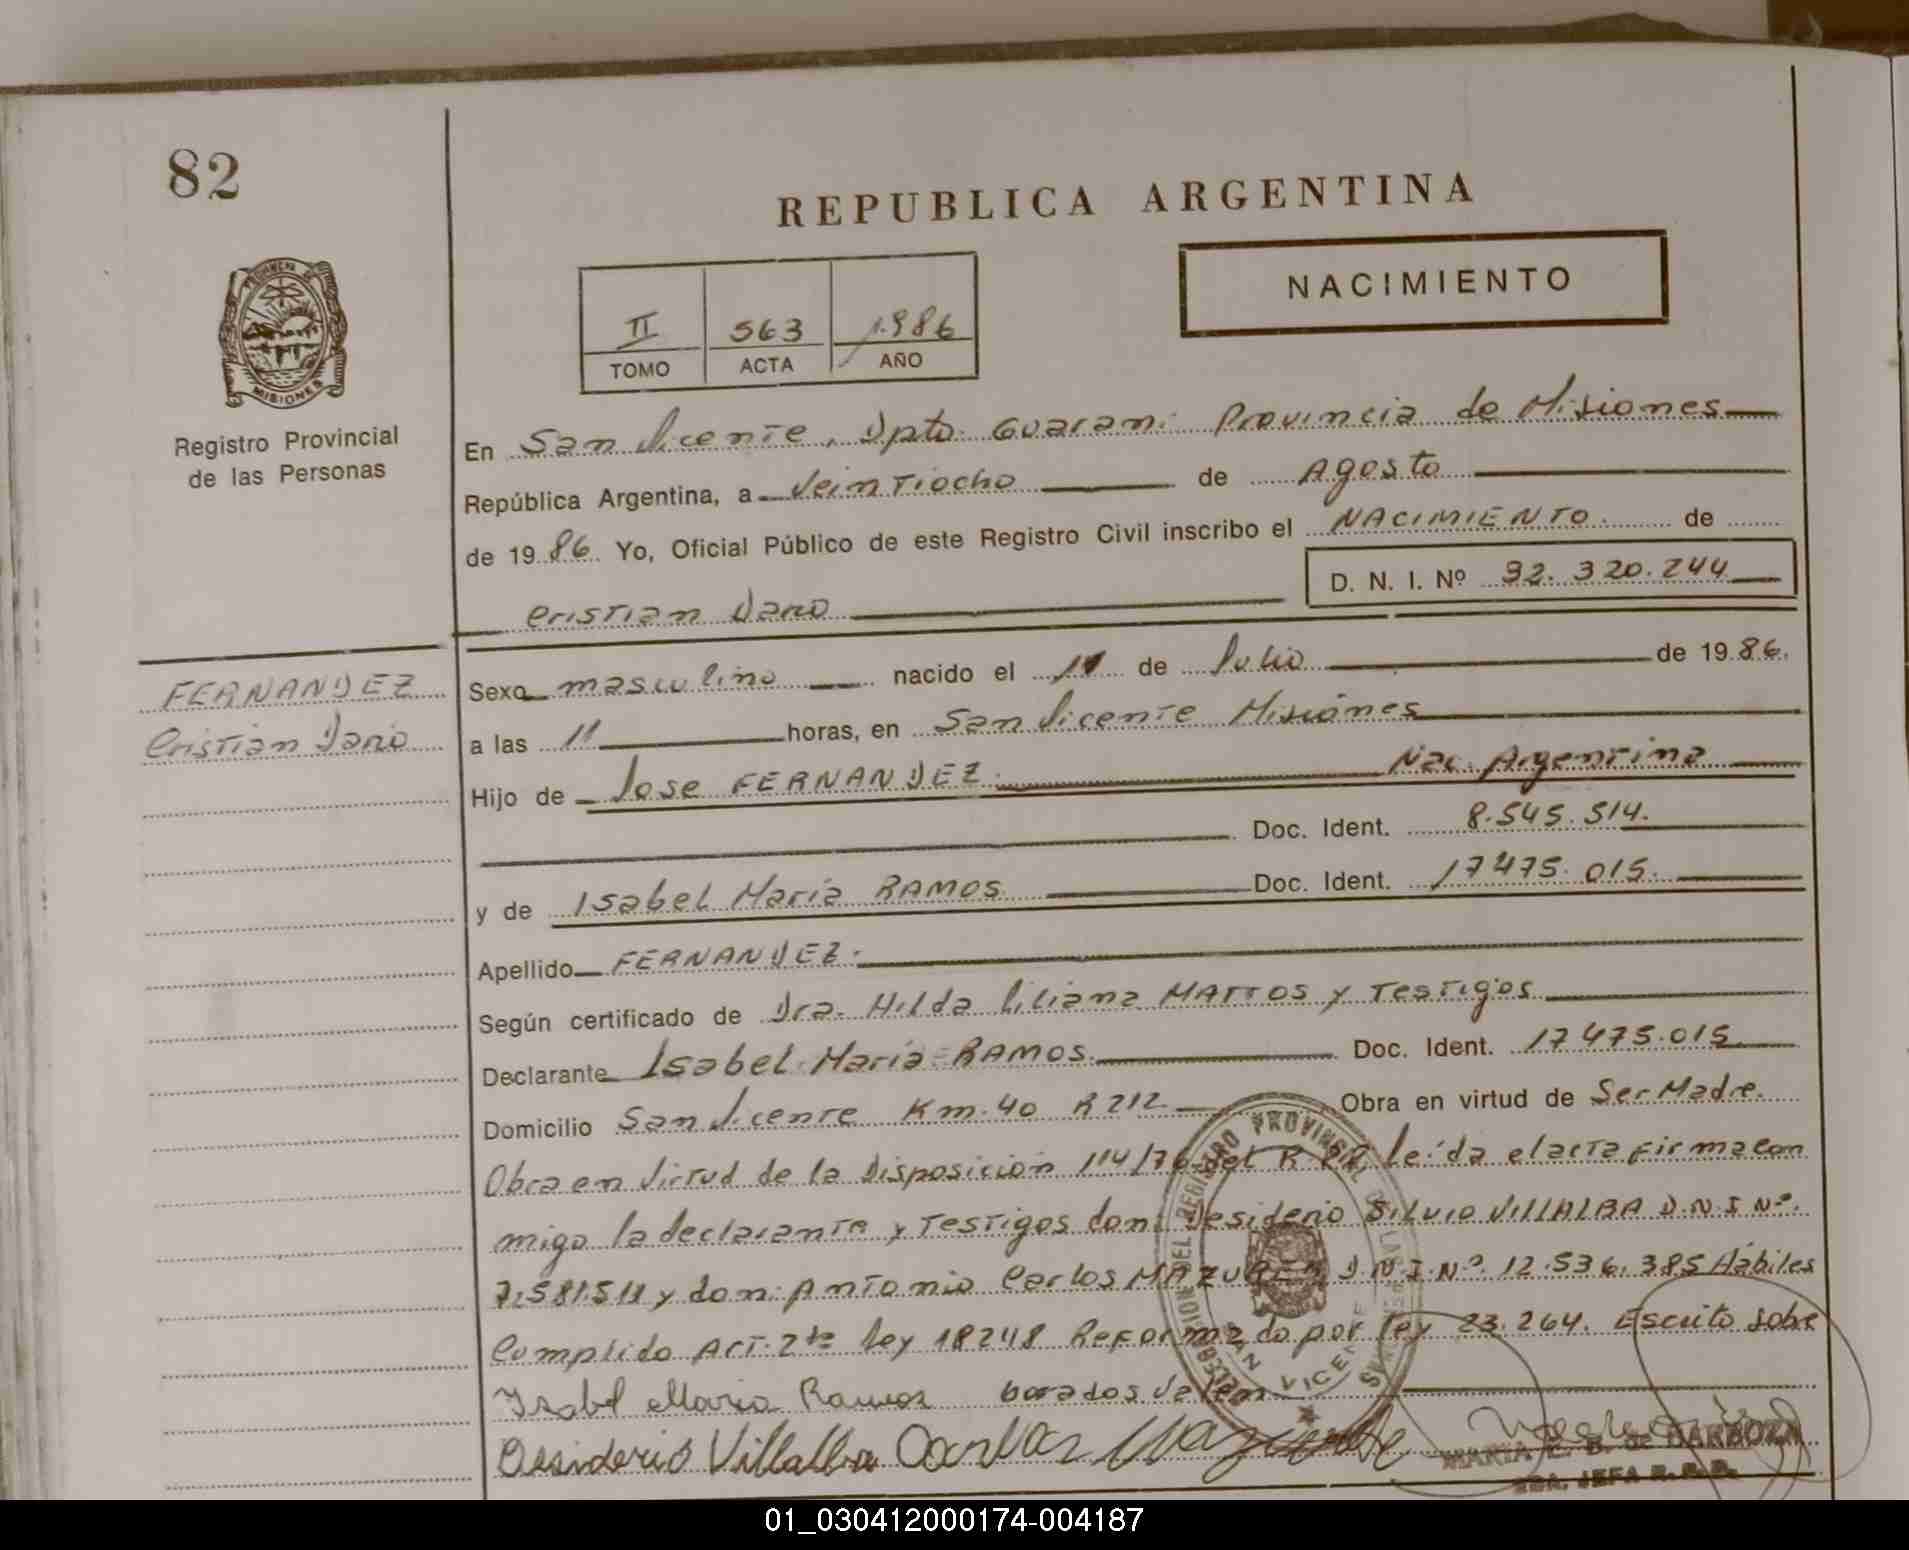 82
REPUBLICA ARGENTINA
NACIMIENTO
II 563 1.986
TOMO ACTA AÑO
PROVINCIA DE
MISIONES
Registro Provincial
de las Personas
En San Vicente, Dpto. Guarani Provincia de Misiones
República Argentina, a Veintiocho de Agosto
de 19 86. Yo, Oficial Público de este Registro Civil inscribo el NACIMIENTO de
D. N. I. Nº 32.320.244
Cristian Dario
FERNANDEZ
Cristian Dario
Sexo masculino nacido el 11 de Julio de 19 86.
a las 11 horas, en San Vicente Misiones
Hijo de Jose FERNANDEZ. Nac. Argentina
Doc. Ident. 8.545.514.
y de Isabel Maria RAMOS Doc. Ident. 17475.015.
Apellido FERNANDEZ.
Según certificado de Dra. Hilda Liliana MATTOS y Testigos
Declarante Isabel Maria RAMOS. Doc. Ident. 17475.015
Domicilio San Vicente Km. 40 R 212 Obra en virtud de Ser Madre.
Obra en virtud de la Disposición 114/76 del R leída el acta Firma con
migo la declarante y Testigos don: Desiderio SILVIO VILLALBA D.N.I Nº.
7.581.511 y don: Antonio Carlos D.N.I.Nº. 12.536.385 Hábiles
Cumplido Art. 2te Ley 18248 Reformado por ley 23.264. Escrito sobre
Isabel Maria Ramos borados valen
Desiderio Villalba Carlos
MARIA E. B. de BARBOZA
JEFA R. P. P.
REGISTRO PROVINCIAL DE LAS
SAN VICENTE
01_030412000174-004187